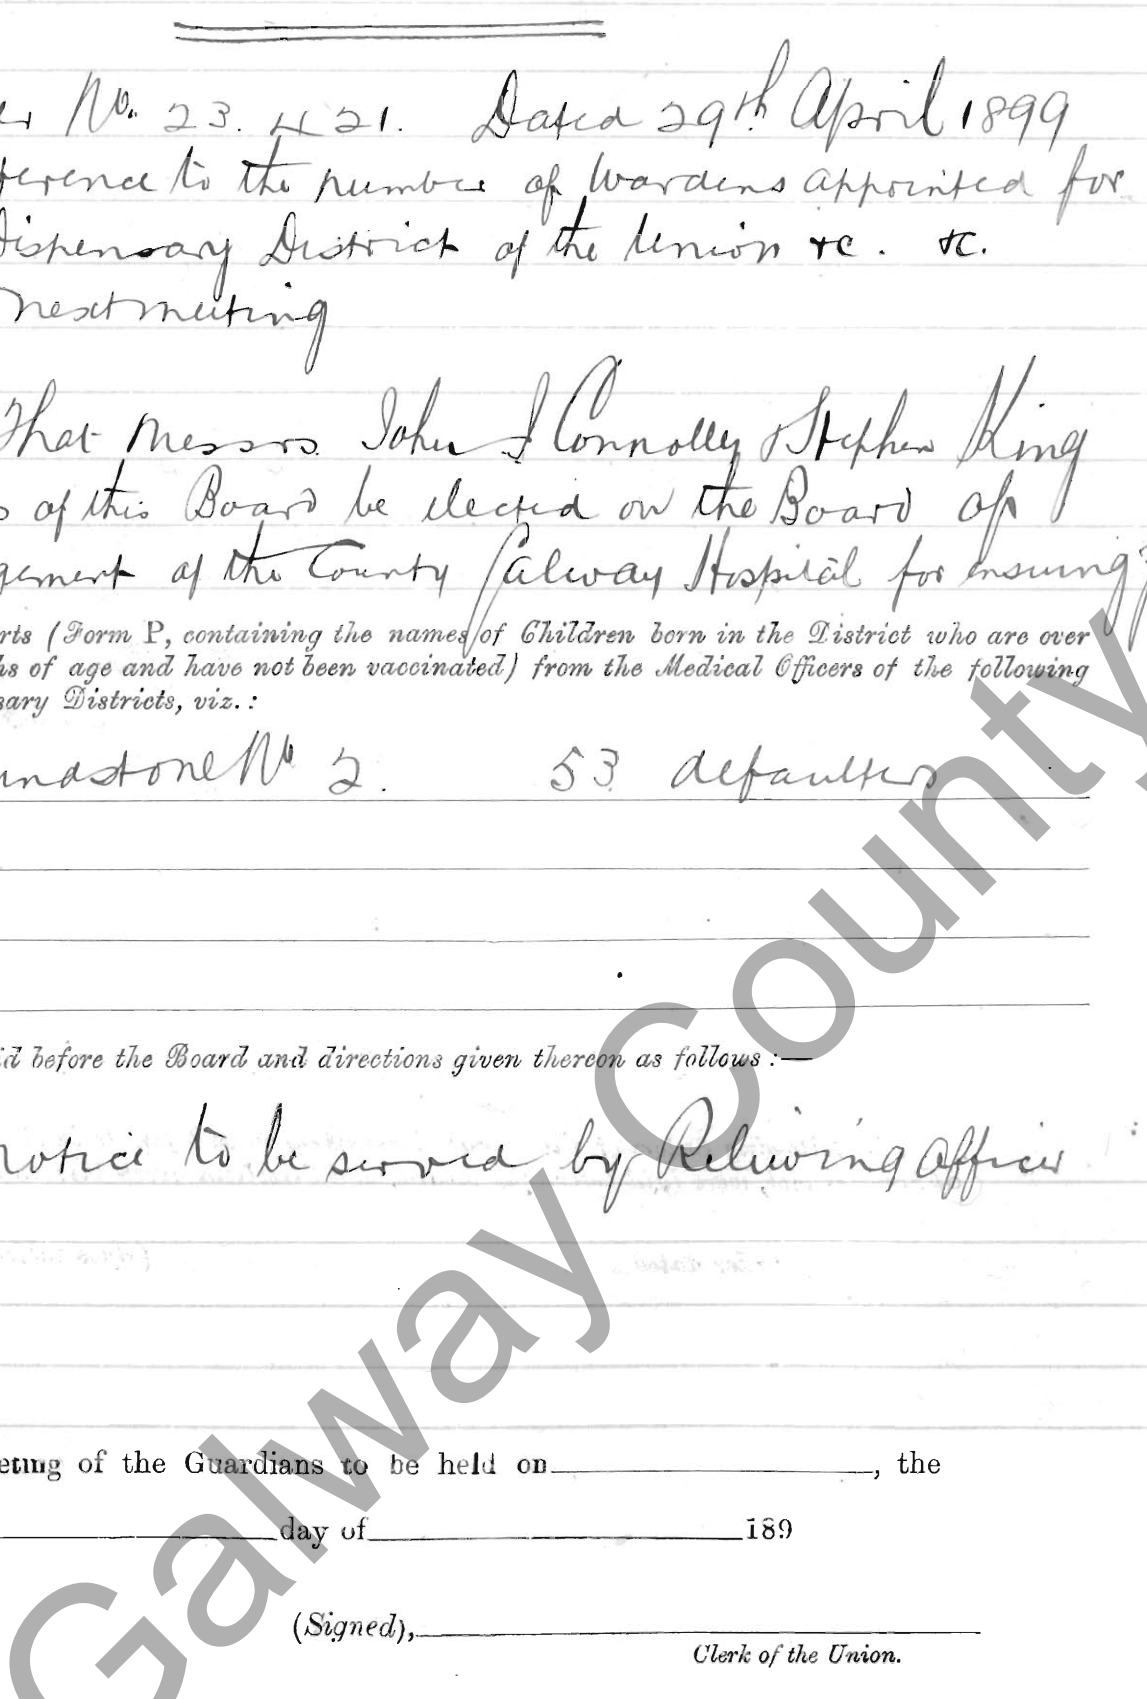 er No. 23.421. Dated 29th April 1899
ference to the number of Wardens appointed for
Dispensary District of the Union &c. &c.
next meeting
That Messrs. John S Connolly & Stephen King
s of this Board be elected on the Board of
gement of the County Galway Hospital for ensuing
rts (Form P, containing the names of Children born in the District who are over
hs of age and have not been vaccinated) from the Medical Officers of the following
sary Districts, viz.:
undstone No 2. 53 defaulters
id before the Board and directions given thereon as follows:—
notice to be served by Relieving Officer
eting of the Guardians to be held on , the
day of 189
(Signed),
Clerk of the Union.
Galway County